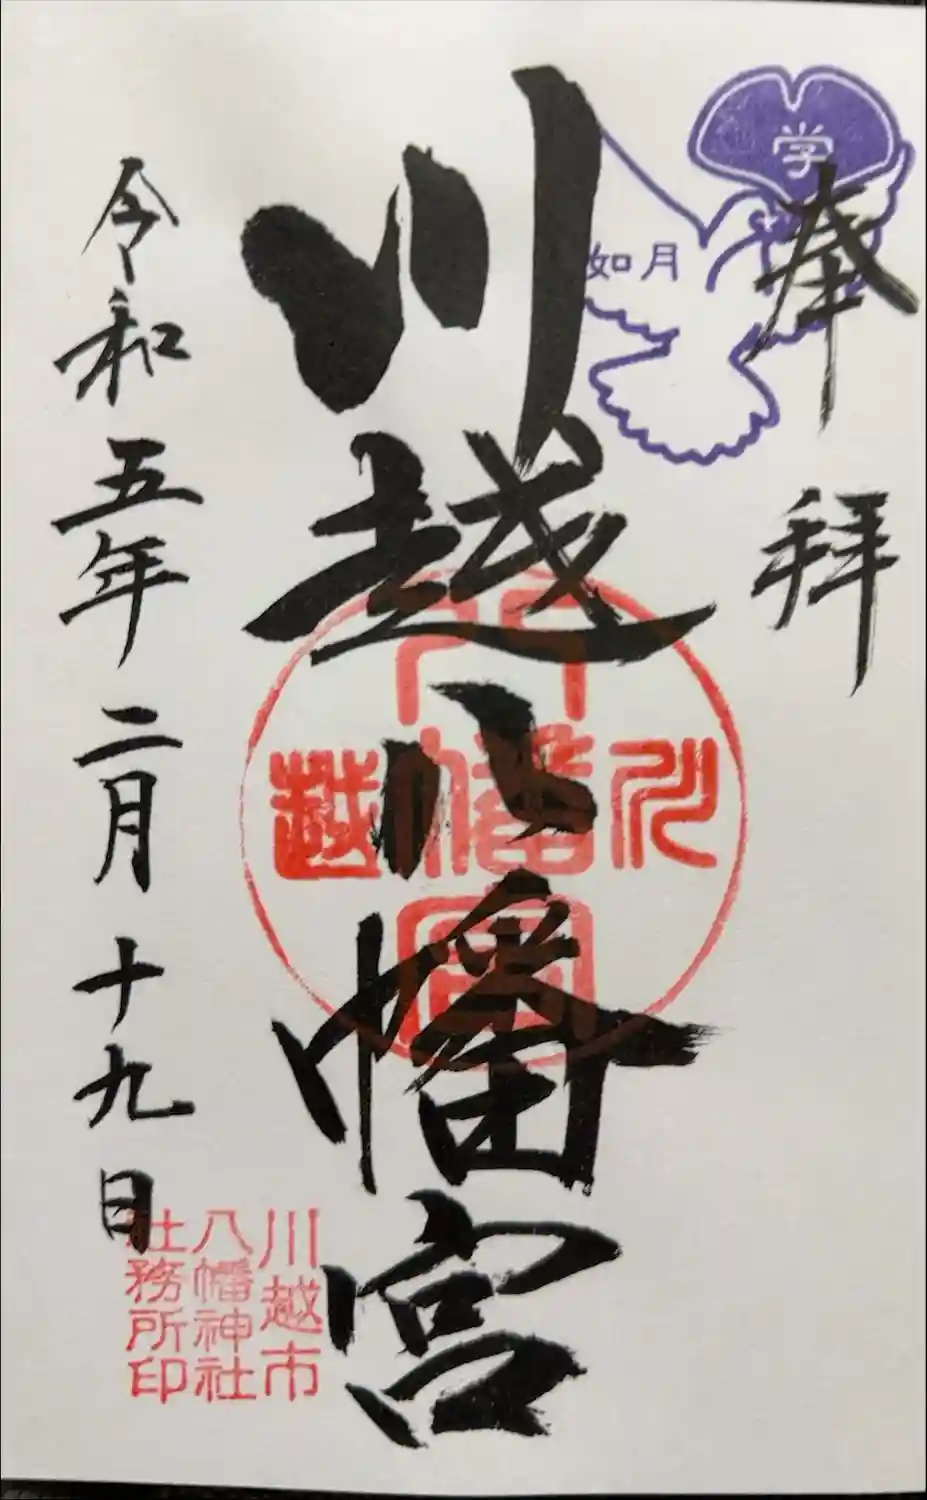 学
如月
奉拝
川越八幡宮
川越
八幡宮
令和五年二月十九日
川越市
八幡神社
社務所印